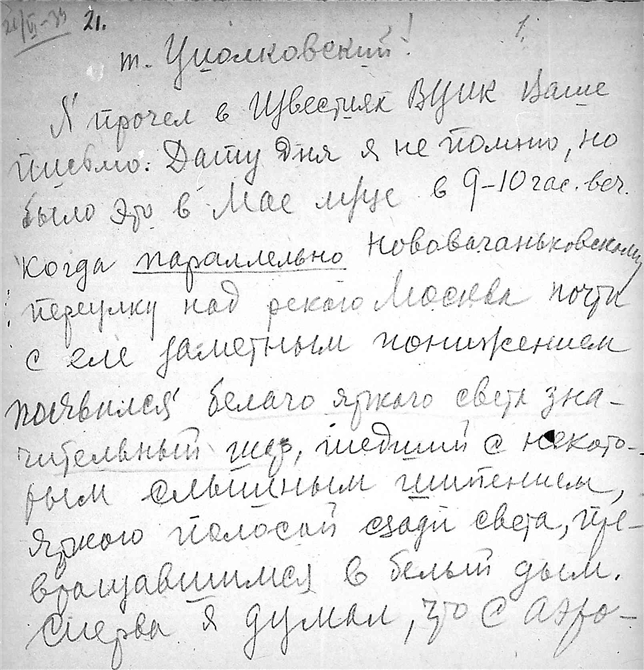 21/VI-34 21. 1.
т. Циолковский!
Я прочел в Известиях ВЦИК Ваше
письмо: Дату дня я не помню, но
было это в Мае м-це в 9-10 час. веч.
когда параллельно Нововаганьковскому
переулку над рекою Москва почти
с еле заметным понижением
появился белаго яркого света зна-
чительный шар, шедший с некото-
рым слышным шипением,
яркого полосой сзади света, пре-
вращавшимся в белый дым.
Сперва я думал, что с аэро-